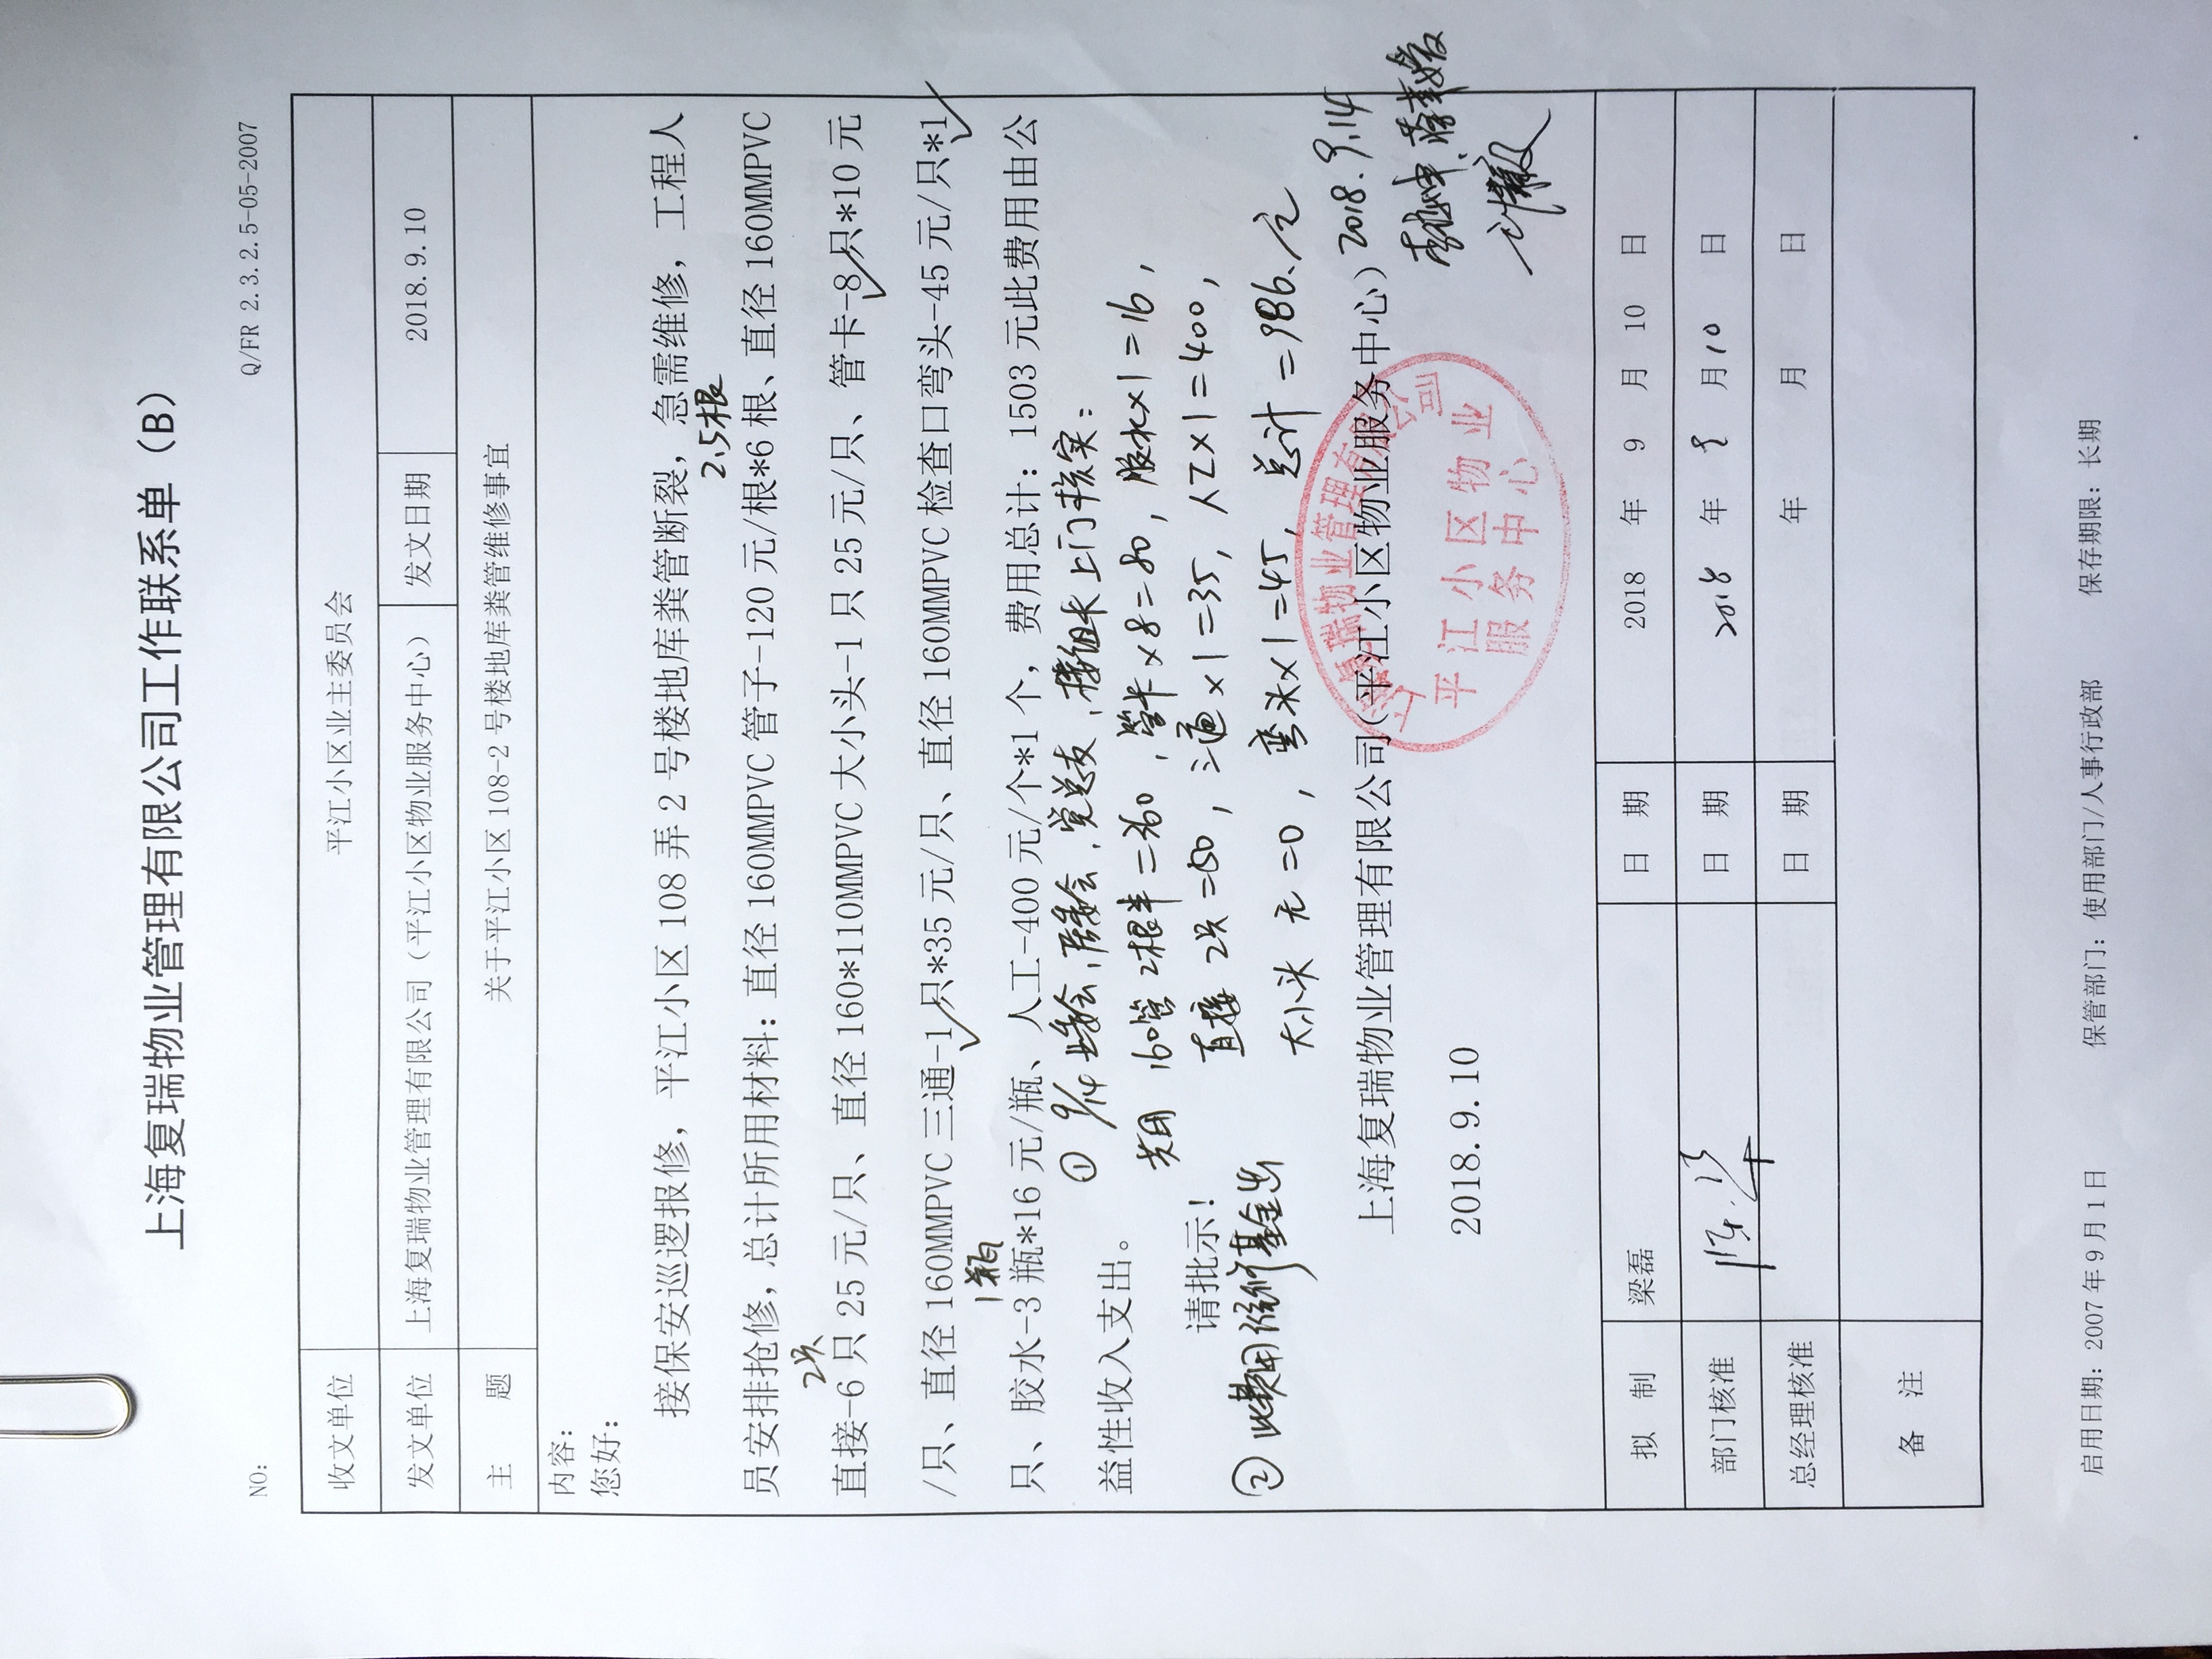 上海复瑞物业管理有限公司工作联系单（B）
NO: Q/FR 2.3.2.5-05-2007
收文单位 平江小区业主委员会
发文单位 上海复瑞物业管理有限公司（平江小区物业服务中心） 发文日期 2018.9.10
主 题 关于平江小区 108-2 号楼地库粪管维修事宜
内容：
您好：
接保安巡逻报修，平江小区 108 弄 2 号楼地库粪管断裂，急需维修，工程人
2.5根
员安排抢修，总计所用材料：直径 160MMPVC 管子-120 元/根*6 根、直径 160MMPVC
2只
直接-6 只 25 元/只、直径 160*110MMPVC 大小头-1 只 25 元/只、管卡-8 只*10 元
/只、直径 160MMPVC 三通-1 只*35 元/只、直径 160MMPVC 检查口弯头-45 元/只*1
1瓶
只、胶水-3 瓶*16 元/瓶、人工-400 元/个*1 个，费用总计：1503 元此费用由公
益性收入支出。
① 9/14 业委会、居委会、党总支、楼组长上门核实：
共用 160管 2根半=300，管卡×8=80，胶水×1=16，
请批示！
直接 2只=50，三通×1=35，人工×1=400，
② 此费用维修基金出
大小头 无=0，弯头×1=45，总计=986.元
上海复瑞物业管理有限公司（平江小区物业服务中心）
2018.9.14
2018.9.10
上海复瑞物业管理有限公司
平江小区物业
服务中心
拟 制 梁磊 日 期 2018 年 9 月 10 日
部门核准 日 期 2018 年 9 月 10 日
总经理核准 日 期 年 月 日
备 注
启用日期：2007 年 9 月 1 日 保管部门：使用部门/人事行政部 保存期限：长期